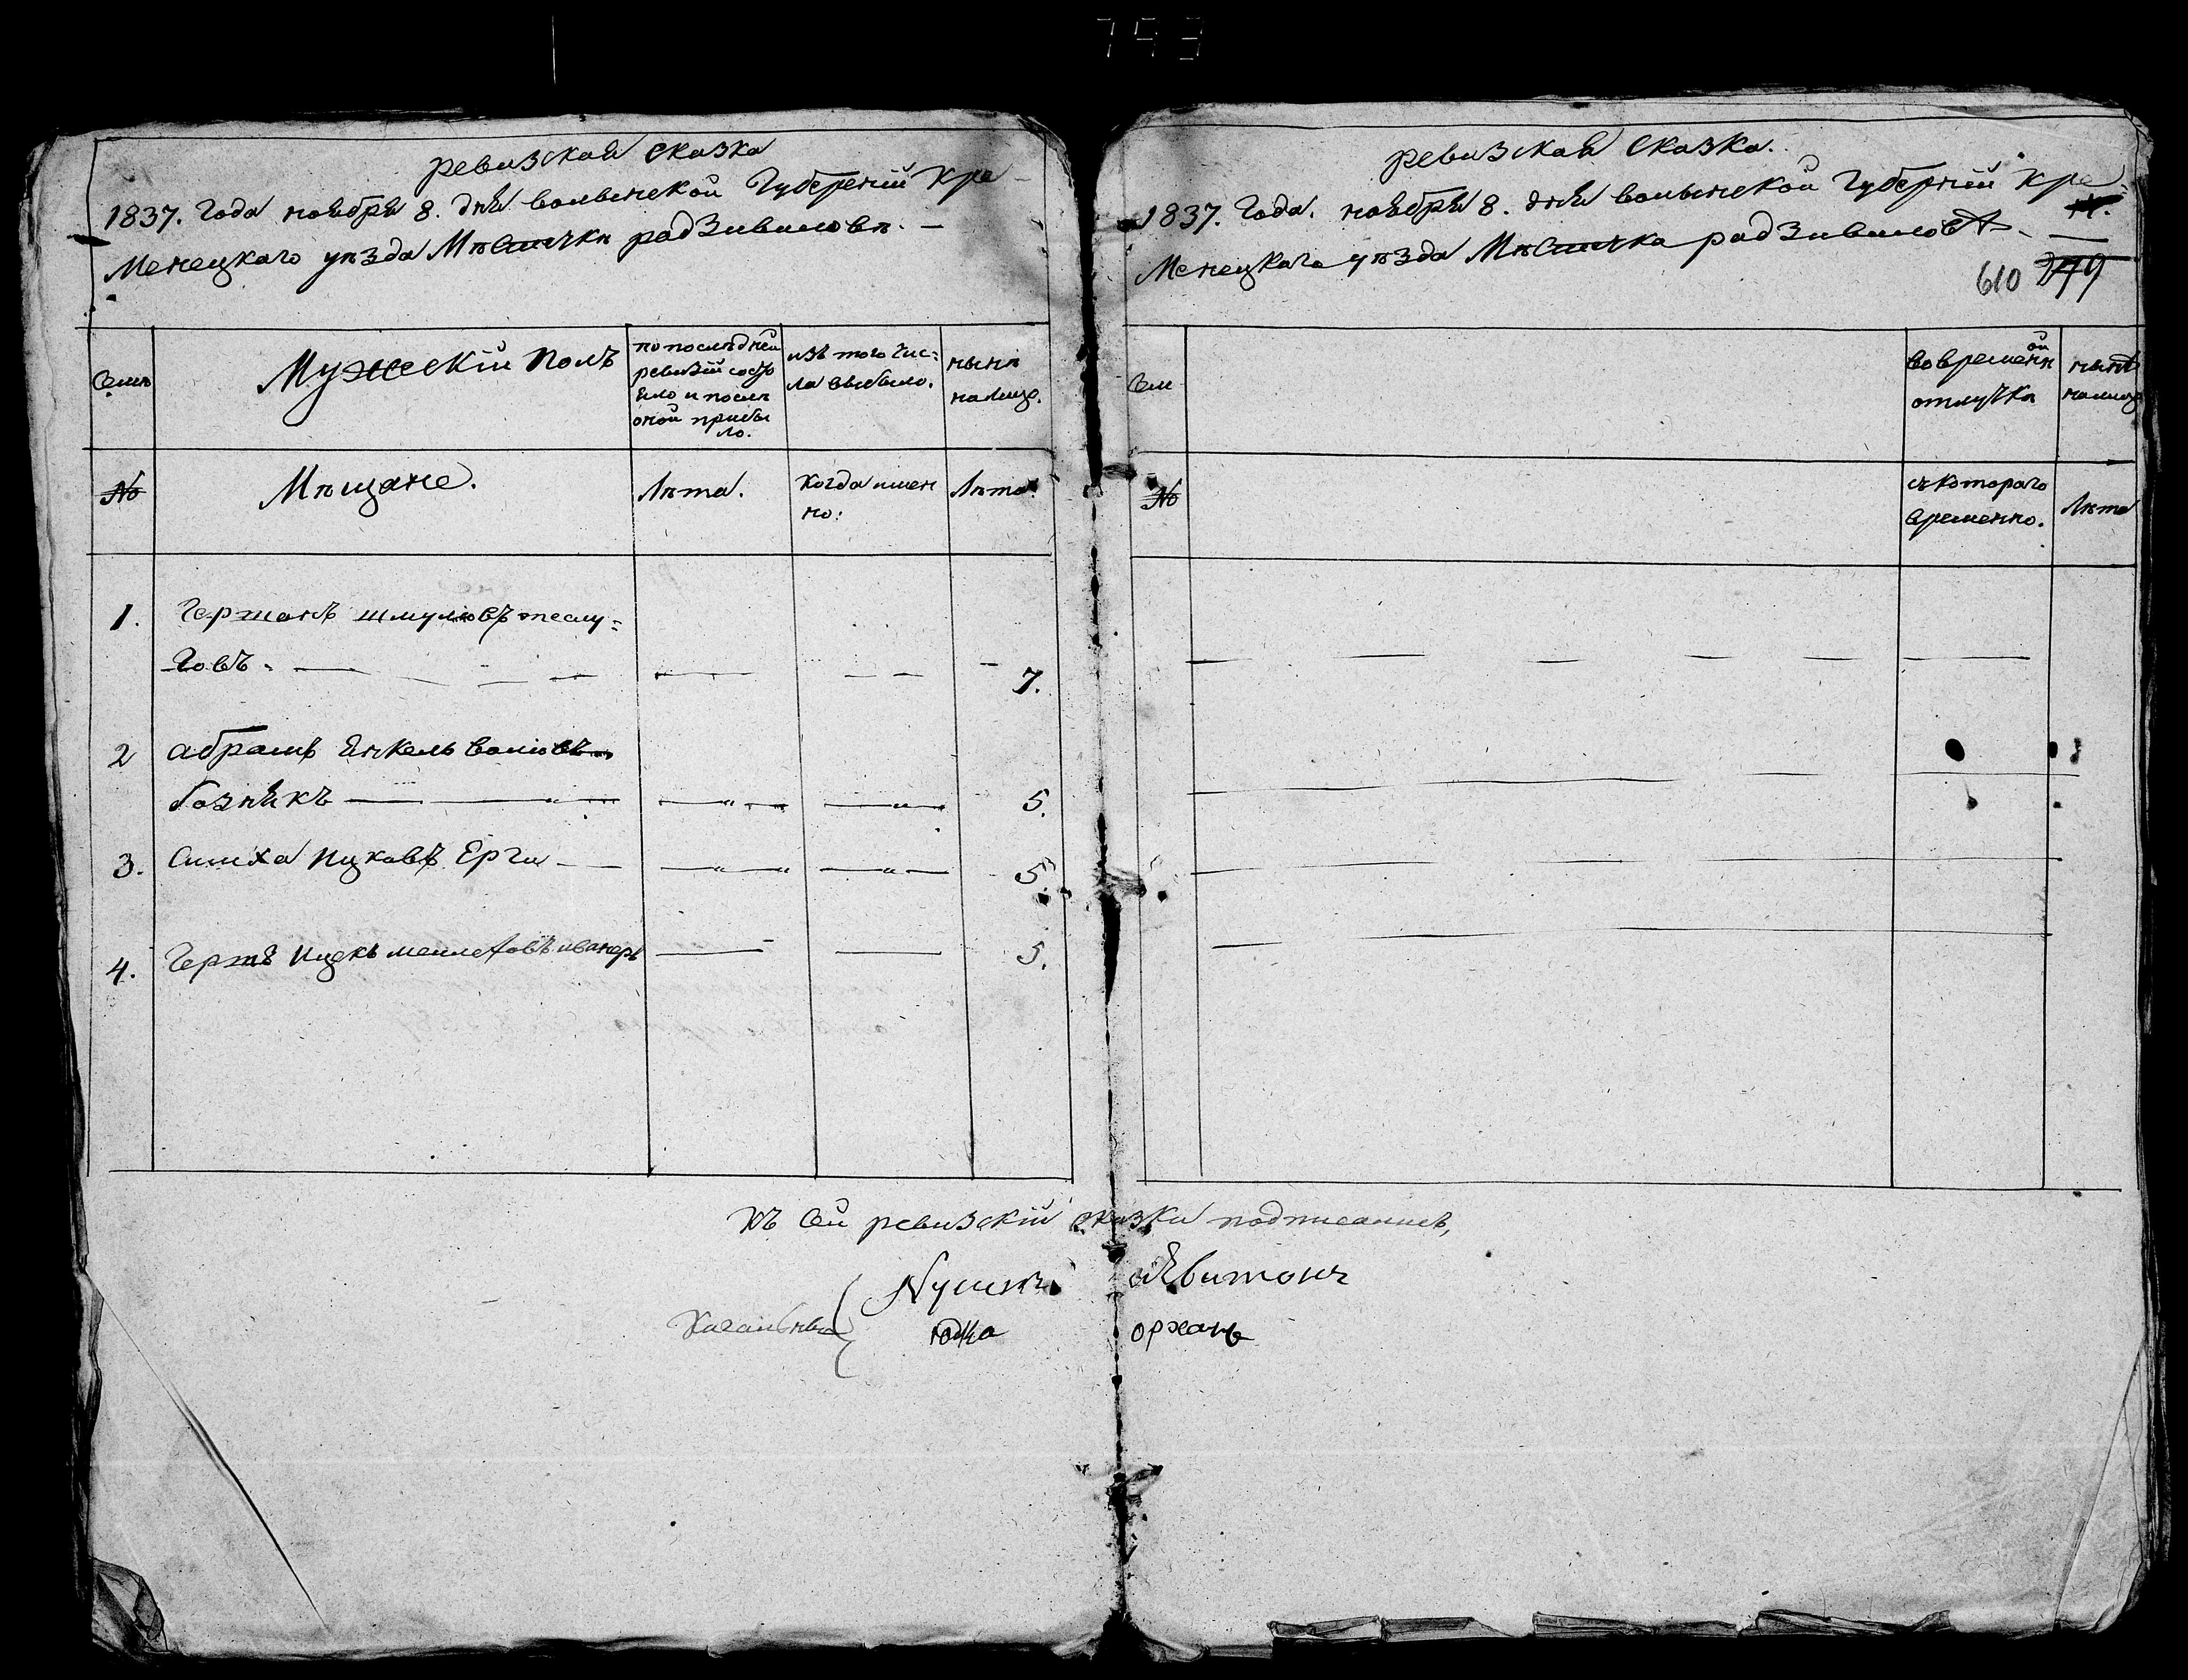 753
ревизская сказка
1837. Года ноября 8. дня волынской Губерній Кре-
менецкаго уѣзда Мѣстечкѣ радзивиловѣ. —
Семѣ
Мужескій Полъ
по послѣдней
ревизій состо
яло и послѣ
оной прибы
ло.
изъ того чис=
ла выбыло.
нынѣ
налицо.
№
Мѣщане.
Лѣта.
Когда имен
но:
Лѣта
1. Гершонъ шмулювъ
7.
2 абрамъ Янкель
бознякъ
5.
3. Симха Ицковъ Ерги
5.
4. Гершъ Ицекъ
5.
ревизская Сказка.
1837. Года. ноября 8. дня волынской Губерній Кре
менецкаго уѣзда Мѣстечка радзивиловѣ
610
Сем
во временной
отлучкѣ
нынѣ
налицо
№
съ котораго
временно.
Лѣта
Къ Сей ревизскій сказки подписались,
орханъ